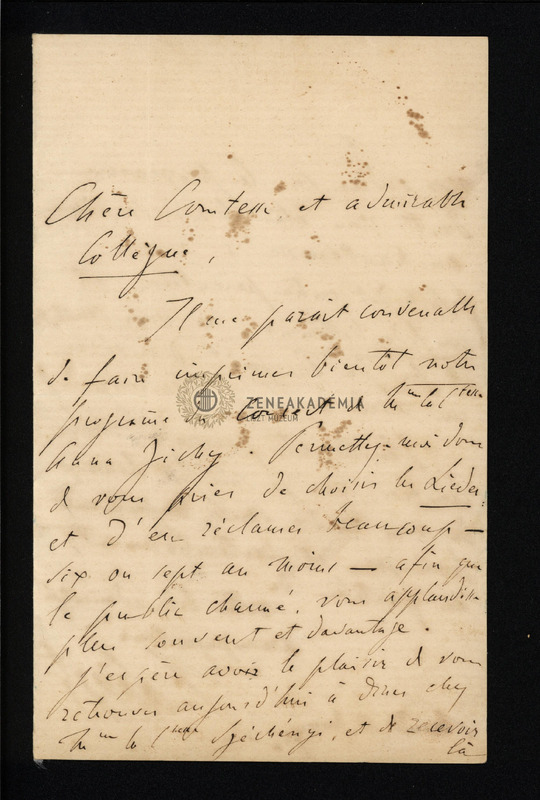 Chère Comtesse et admirable
Collègue,
Il me parait convenable
de faire imprimer bientôt notre
programme du Concert de Mme la Ctesse
Anna Zichy. Permettez-moi donc
de vous prier de choisir les Lieder,
et d'en réclamer beaucoup —
six ou sept au moins — afin que
le public charmé, vous applaudisse
plus souvent et davantage.
J'espère avoir le plaisir de vous
retrouver aujourd'hui à dîner chez
Mme la Ctesse Széchényi, et de recevoir
là
ZENEAKADÉMIA
LISZT MUSEUM